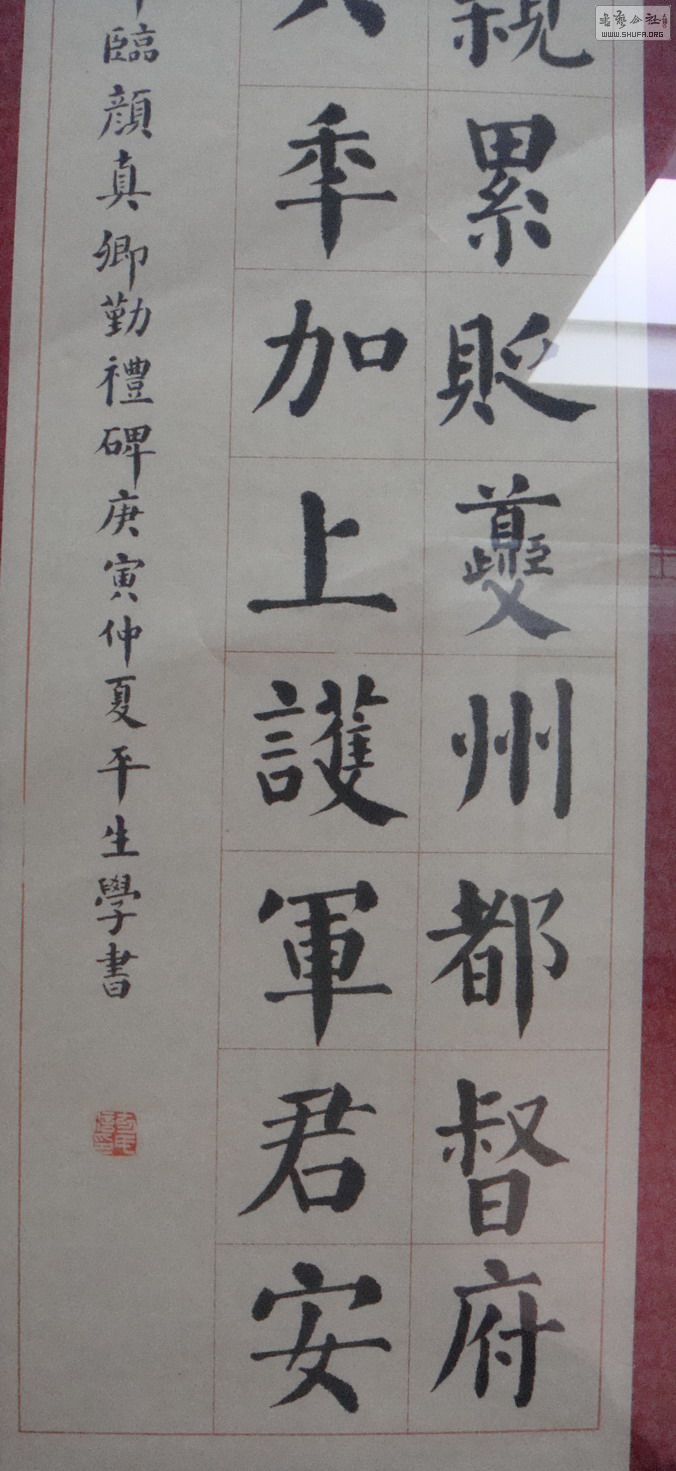 親累貶夔州都督府
六年加上護軍君安
節臨顏真卿勤禮碑庚寅仲夏平生學書
書法公社
WWW.SHUFA.ORG